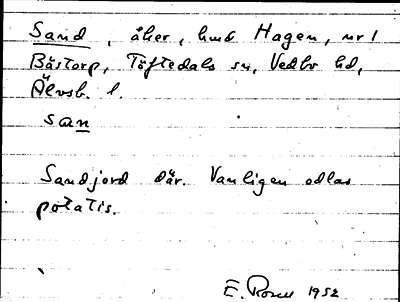 Sand, åker, hmd Hagen, nr 1
Båstorp, Töftedals sn, Vedbo hd,
Älvsb. l.
san
Sandjord där. Vanligen odlas
potatis.
E. 1952